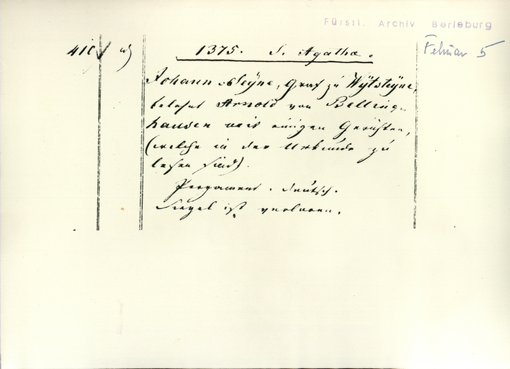 Fürstl. Archiv Berleburg
1375. S. Agatha.
Februar 5
Johann, Graf zu
belehnt Arnold von Belling-
hausen mit einigen Gerüsten,
(welche in der Urkunde zu
lesen sind).
Pergament. deutsch.
Siegel ist verloren.